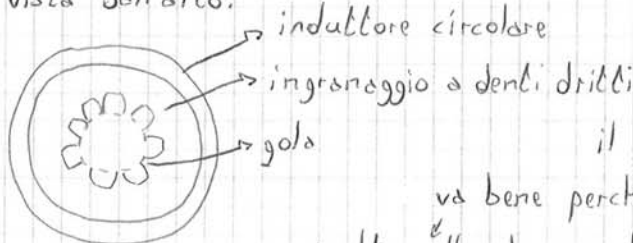 vista dall'alto:
induttore circolare
ingranaggio a denti dritti
gola
il
va bene perch